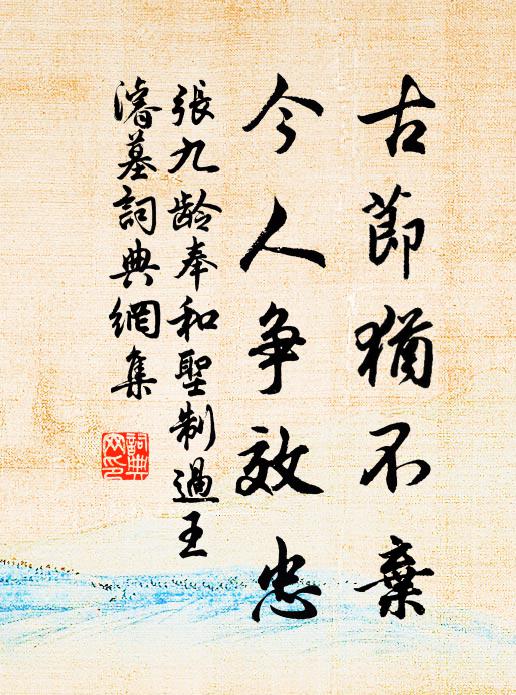 古節猶不棄
今人争效忠
張九龄奉和聖制過王
濬墓詞典網集
詞典
网印